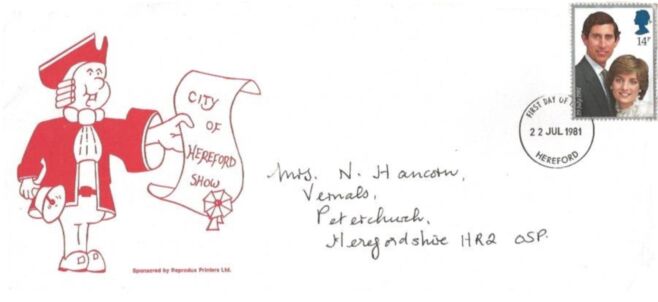 14P
29 July 1981
FIRST DAY OF
22 JUL 1981
HEREFORD
CITY
OF
HEREFORD
SHOW
Mrs. N. Hancorn,
Vernals,
Peterchurch,
Herefordshire HR2 OSP.
Sponsored by Reprodux Printers Ltd.